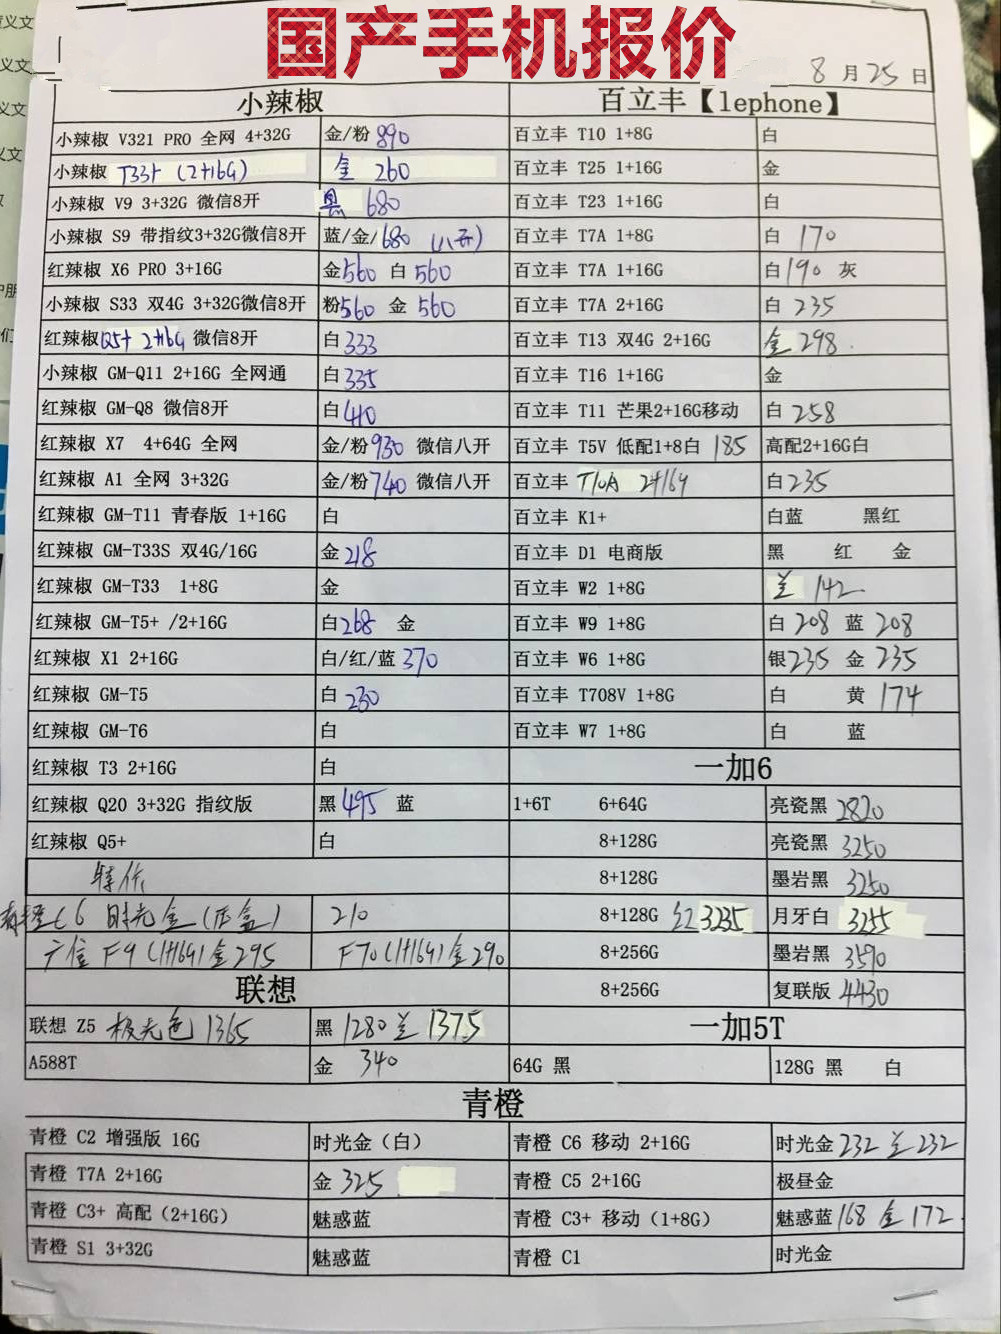 国产手机报价
8月25日
小辣椒 百立丰【lephone】
小辣椒 V321 PRO 全网 4+32G 金/粉 890 百立丰 T10 1+8G 白
小辣椒 T33+ (2+16G) 金 260 百立丰 T25 1+16G 金
小辣椒 V9 3+32G 微信8开 黑 680 百立丰 T23 1+16G 白
小辣椒 S9 带指纹3+32G微信8开 蓝/金/680 (八开) 百立丰 T7A 1+8G 白 170
红辣椒 X6 PRO 3+16G 金560 白 560 百立丰 T7A 1+16G 白190 灰
小辣椒 S33 双4G 3+32G微信8开 粉560 金 560 百立丰 T7A 2+16G 白 235
红辣椒Q5+ 2+16G 微信8开 白333 百立丰 T13 双4G 2+16G 金 298
小辣椒 GM-Q11 2+16G 全网通 白335 百立丰 T16 1+16G 金
红辣椒 GM-Q8 微信8开 白410 百立丰 T11 芒果2+16G移动 白 258
红辣椒 X7 4+64G 全网 金/粉930 微信八开 百立丰 T5V 低配1+8白 185 高配2+16G白
红辣椒 A1 全网 3+32G 金/粉740 微信八开 百立丰 T10A 2+16G 白235
红辣椒 GM-T11 青春版 1+16G 白 百立丰 K1+ 白蓝 黑红
红辣椒 GM-T33S 双4G/16G 金218 百立丰 D1 电商版 黑 红 金
红辣椒 GM-T33 1+8G 金 百立丰 W2 1+8G 兰 142
红辣椒 GM-T5+ /2+16G 白268 金 百立丰 W9 1+8G 白 208 蓝 208
红辣椒 X1 2+16G 白/红/蓝 370 百立丰 W6 1+8G 银235 金 235
红辣椒 GM-T5 白 230 百立丰 T708V 1+8G 白 黄 174
红辣椒 GM-T6 白 百立丰 W7 1+8G 白 蓝
红辣椒 T3 2+16G 白 一加6
红辣椒 Q20 3+32G 指纹版 黑 495 蓝 1+6T 6+64G 亮瓷黑 2820
红辣椒 Q5+ 白 8+128G 亮瓷黑 3250
特价 8+128G 墨岩黑 3250
青橙C6 时光金(正盒) 210 8+128G 红3235 月牙白 3255
广信 F9 (1+16G)金295 F70(1+16G)金290 8+256G 墨岩黑 3590
联想 8+256G 复联版 4430
联想 Z5 极光色 1365 黑 1280 兰 1375 一加5T
A588T 金 340 64G 黑 128G 黑 白
青橙
青橙 C2 增强版 16G 时光金（白） 青橙 C6 移动 2+16G 时光金 232 兰 232
青橙 T7A 2+16G 金 325 青橙 C5 2+16G 极昼金
青橙 C3+ 高配（2+16G） 魅惑蓝 青橙 C3+ 移动（1+8G） 魅惑蓝 168 金 172
青橙 S1 3+32G 魅惑蓝 青橙 C1 时光金